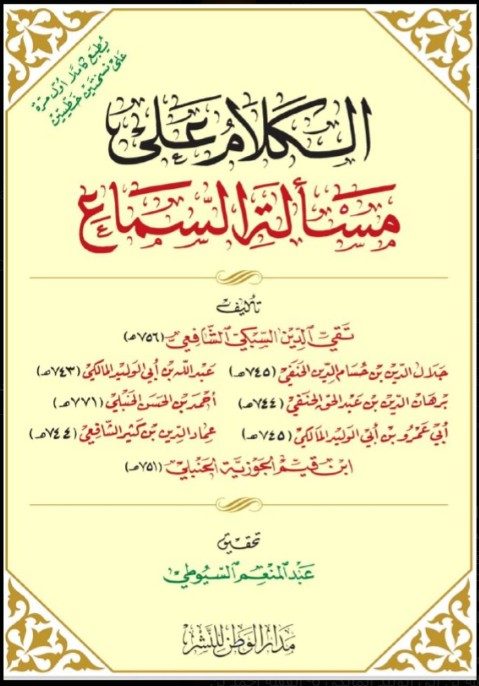 يطبع كاملا أول مرة
على نسختين خطيتين
الكلام على
مسألة السماع
تأليف
تقي الدين السبكي الشافعي (٧٥٦هـ)
جلال الدين بن حسام الدين الحنفي (٧٤٥هـ) عبد الله بن أبي الوليد المالكي (٧٤٣هـ)
برهان الدين بن عبد الحق الحنفي (٧٤٤هـ) أحمد بن الحسن الحنبلي (٧٧١هـ)
أبي عمرو بن أبي الوليد المالكي (٧٤٥هـ) عماد الدين بن كثير الشافعي (٧٤٤هـ)
ابن قيم الجوزية الحنبلي (٧٥١هـ)
تحقيق
عبد المنعم السيوطي
مدار الوطن للنشر